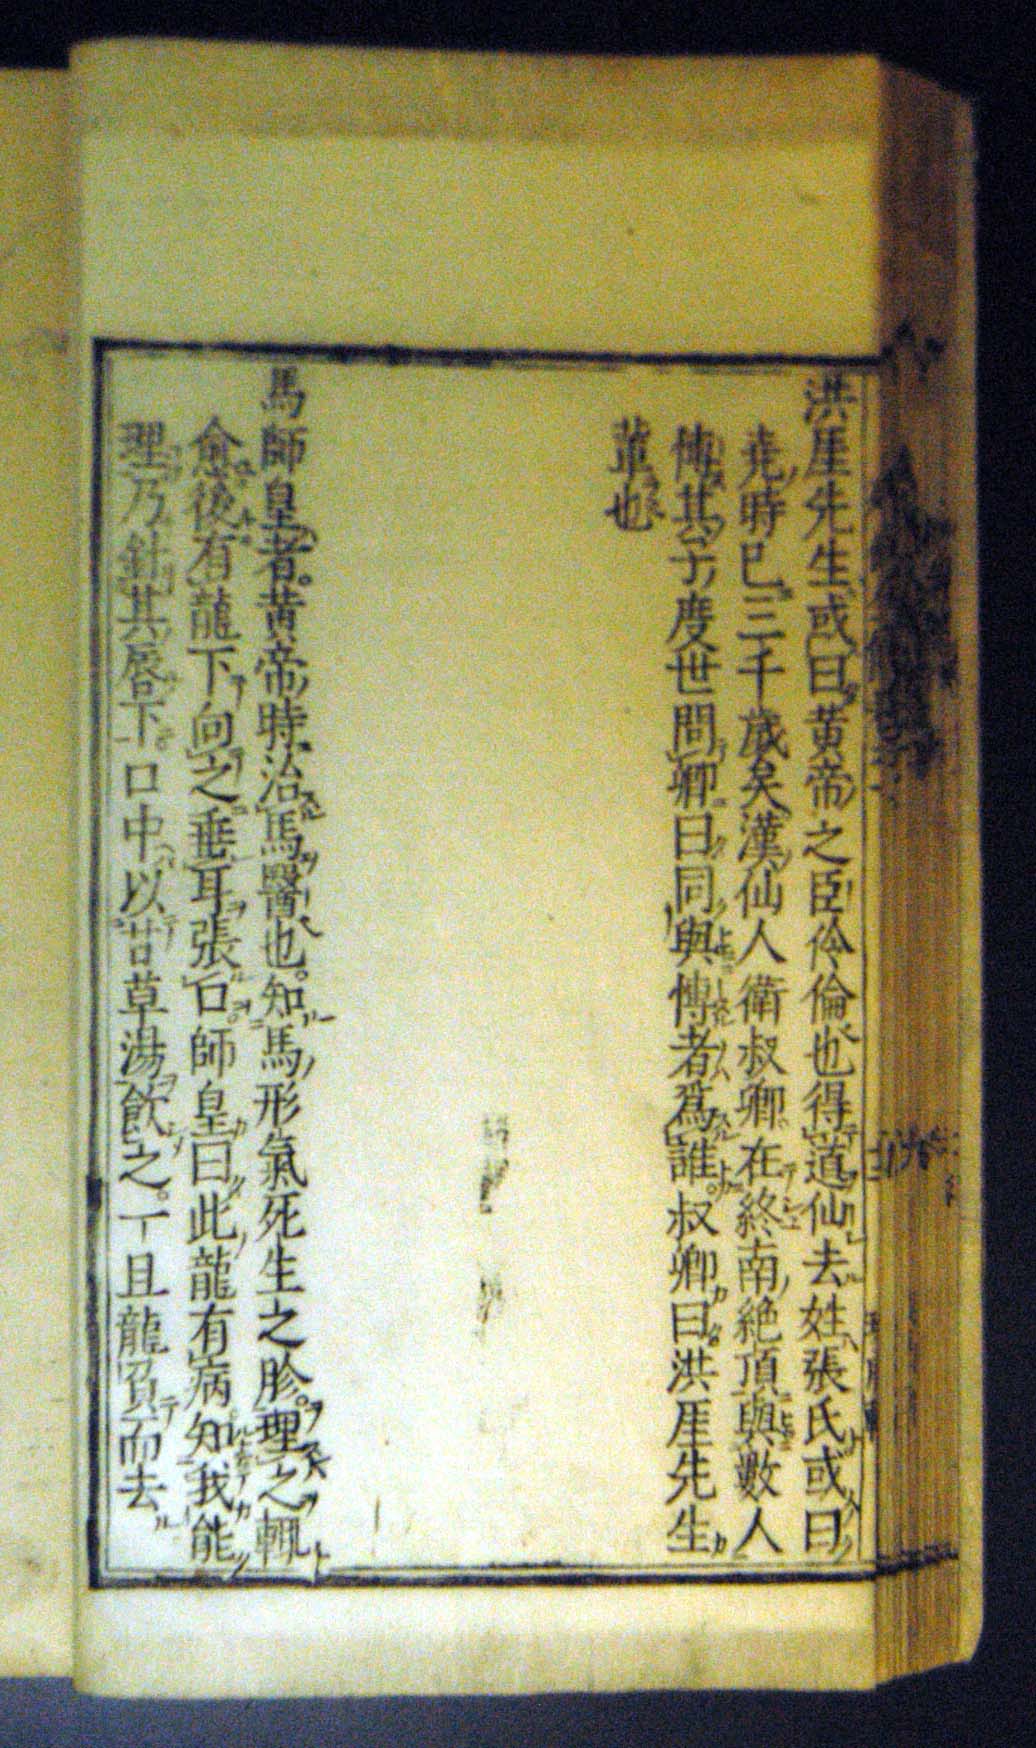 洪崖先生或曰黄帝之臣伶倫也得道仙去姓張氏或曰
尭時已三千歲矣漢仙人衛叔卿在終南絶頂與數人
愽其子度世問卿曰同與愽者爲誰。叔卿曰洪崖先生
軰也
馬師皇者。黄帝時治馬醫也。知馬形氣死生之胗。理之輒
愈後有龍下向之垂耳張口師皇曰此龍有病知我能
理乃針其唇下口中以甘草湯飲之。一旦龍負而去